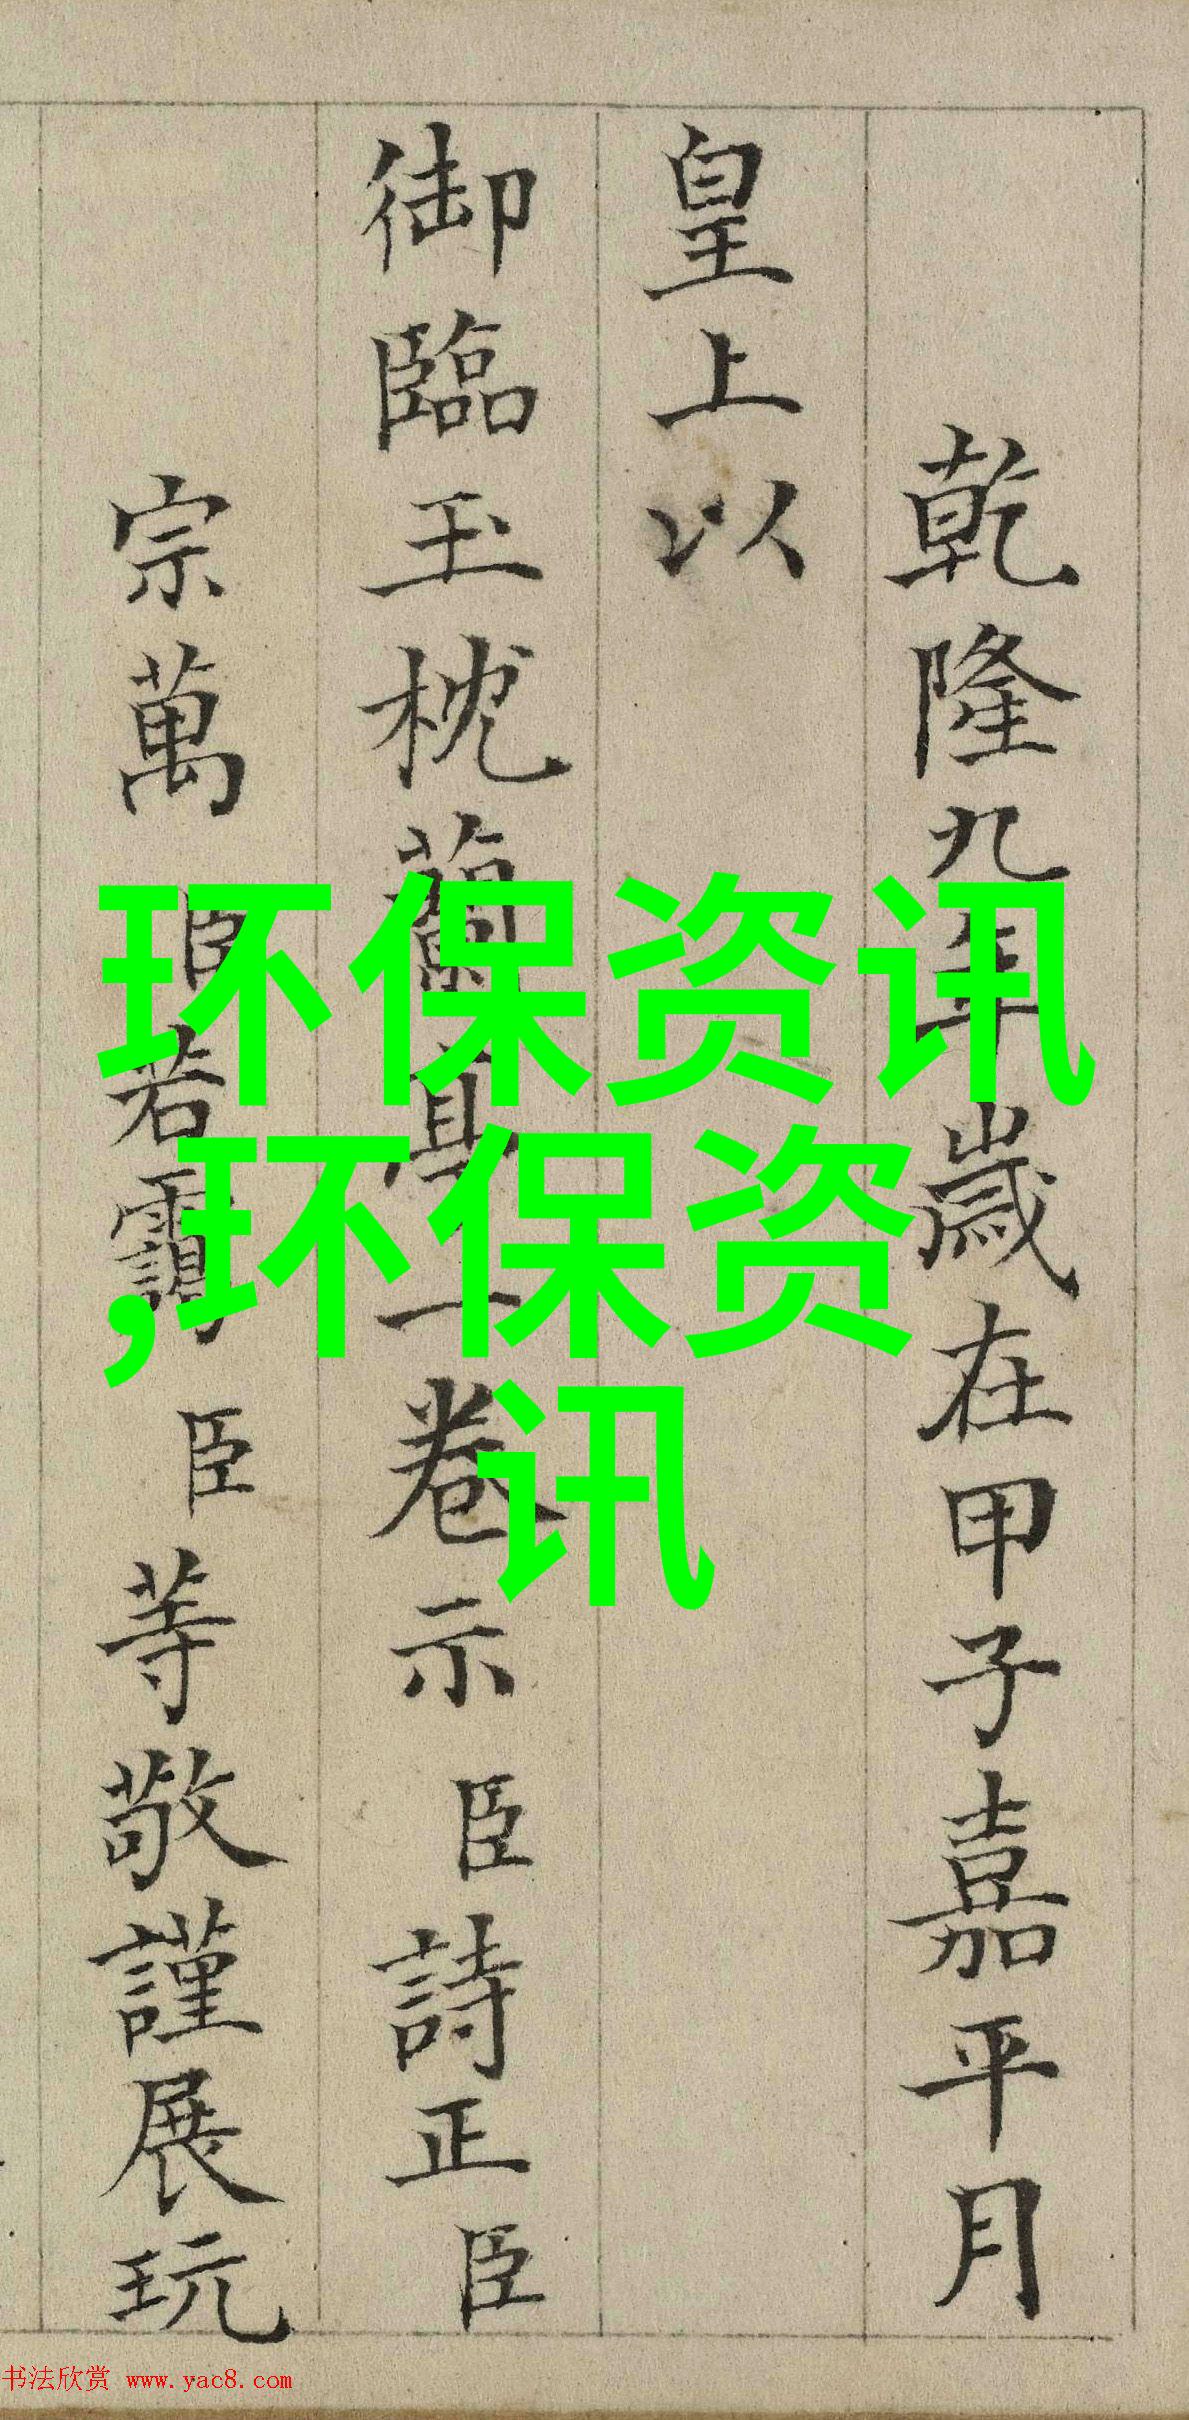 乾隆九年歲在甲子嘉平月
皇上以
御臨玉枕蘭亭一卷示臣詩正臣
宗萬臣若靄臣等敬謹展玩
环保资讯
,环保资
讯
书法欣赏 www.yac8.com